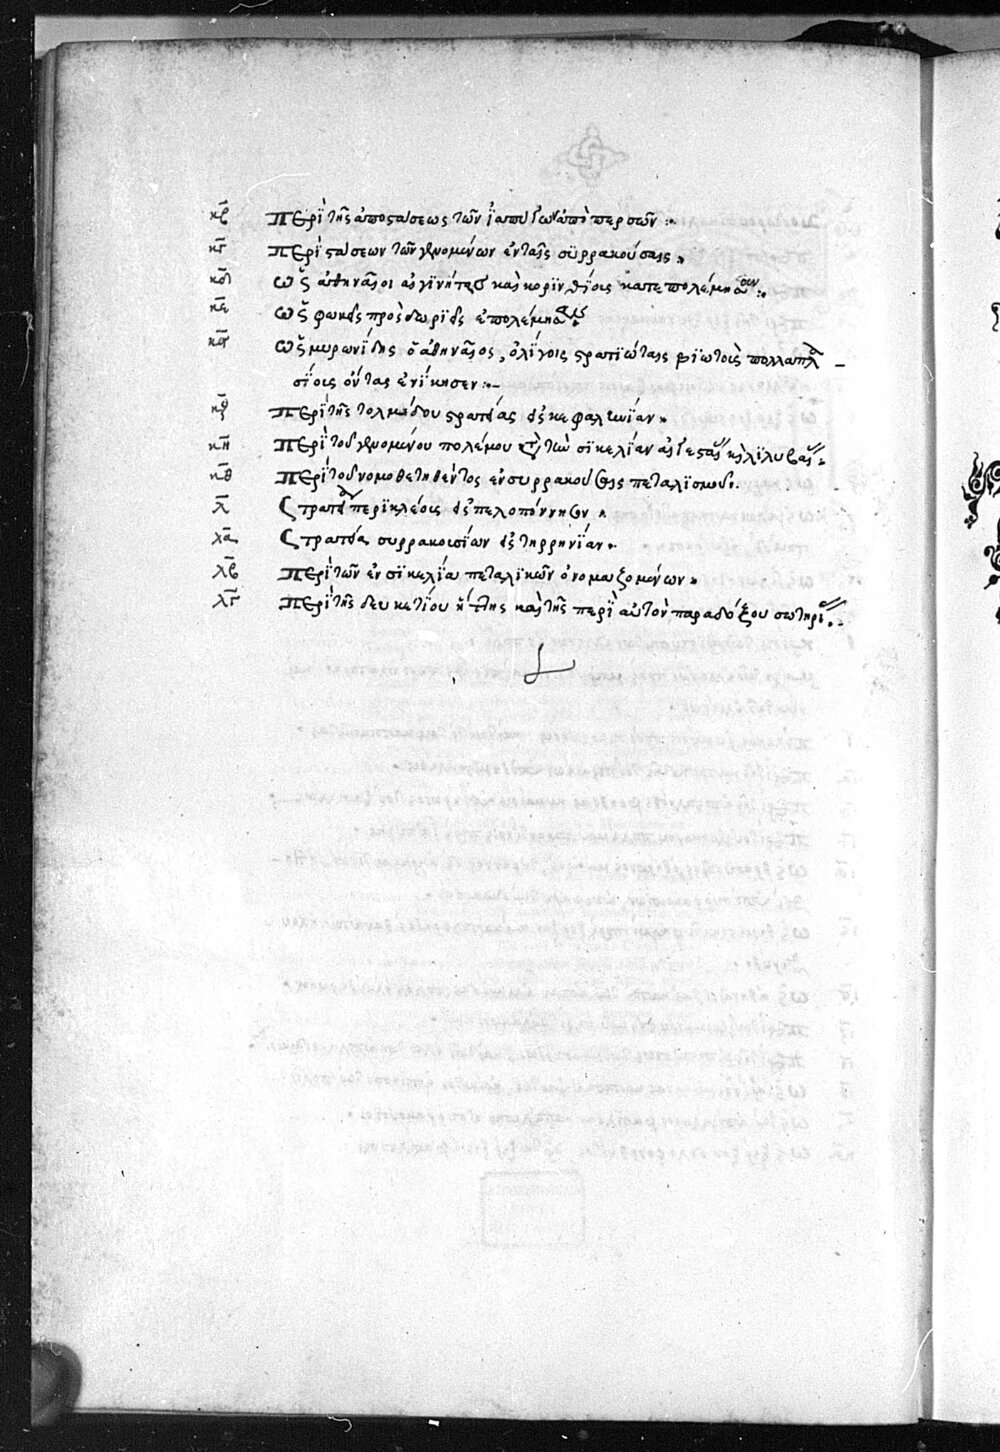 κβ Περὶ τῆς ἀποστάσεως τῶν αἰγυπτίων ἀπὸ περσῶν :·
κγ Περὶ στάσεων τῶν γενομένων ἐν ταῖς συρρακούσαις
κδ Ὡς ἀθηναῖοι αἰγινήτας καὶ κορινθίους κατεπολέμησαν
κε Ὡς φωκεῖς πρὸς δωριεῖς ἐπολέμησαν
κϛ Ὡς μυρωνίδης ὁ ἀθηναῖος, ὀλίγοις στρατιώταις βοιωτοὺς πολλαπλα
σίους ὄντας ἐνίκησεν :·–
κζ Περὶ τῆς τολμίδου στρατείας εἰς κεφαλωνίαν
κη Περὶ τοῦ γενομένου πολέμου κατὰ τὴν σικελίαν αἰγεσταίοις καὶ λιλυβαίοις
κθ Περὶ τοῦ νομοθετηθέντος ἐν συρρακούσαις πεταλισμοῦ
λ Στρατεία περικλέους εἰς πελοπόννησον
λα Στρατεία συρρακοσίων εἰς τηρρηνίαν
λβ Περὶ τῶν ἐν σικελία παλικῶν ὀνομαζομένων
λγ Περὶ τῆς δευκετίου ἥττης καὶ τῆς περὶ αὐτὸν παραδόξου σωτηρίας